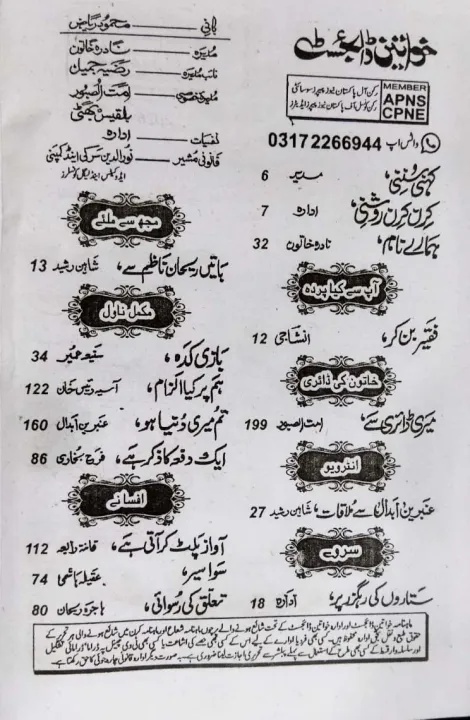 خواتین ڈائجسٹ
رکن آل پاکستان نیوز پیپرز سوسائٹی
رکن کونسل آف پاکستان نیوز پیپرز ایڈیٹرز
MEMBER
APNS
CPNE
واٹس اپ 03172266944
کہنی سُننی، مدیر 6
کرن کرن روشنی، ادارہ 7
ہمارے نام، نادرہ خاتون 32
آپ سے کیا پردہ
فقیر بن کر، انشاجی 12
خاتون کی ڈائری
میری ڈائری سے، امت الصبور 199
انٹرویو
عنبرین ابدال سے ملاقات، شاہین رشید 27
سروے
ستاروں کی رہگزر پر، ادارہ 18
بانی محمود ریاض
مدیرہ نادرہ خاتون
نائب مدیرہ رضیہ جمیل
مدیرہ خصوصی امت الصبور
بلقیس بھٹی
نفسیات ادارہ
قانونی مشیر نورالدین سرکی اینڈ کمپنی
ایڈوکیٹس اینڈ لیگل کونسلرز
مجھ سے ملئے
باتیں ریحان ناظم سے، شاہین رشید 13
مکمل ناول
بازی کدہ، سمیعہ عمیر 34
ہم پر کیا الزام، آسیہ رئیس خان 122
تم میری دنیا ہو، عنبرین ابدال 160
ایک دفعہ کا ذکر ہے، فرح بخاری 86
افسانے
آواز پلٹ کر آتی ہے، قانتہ رابعہ 112
سوا سیر، عقیلہ ہاشمی 74
تعلق کی رسوائی، ہاجرہ ریحان 80
ماہنامہ خواتین ڈائجسٹ اور ادارہ خواتین ڈائجسٹ کے تحت شائع ہونے والے پرچوں ماہنامہ شعاع اور ماہنامہ کرن میں شائع ہونے والی ہر تحریر کے
حقوق طبع و نقل بحق ادارہ محفوظ ہیں۔ کسی بھی فرد یا ادارے کے لیے اس کے کسی بھی حصے کی اشاعت یا کسی بھی ٹی وی چینل پہ ڈراما، ڈرامائی تشکیل
اور سلسلہ وار قسط کے کسی بھی طرح کے استعمال سے پہلے پبلشر سے تحریری اجازت لینا ضروری ہے۔ بہ صورت دیگر ادارہ قانونی چارہ جوئی کا حق رکھتا ہے۔